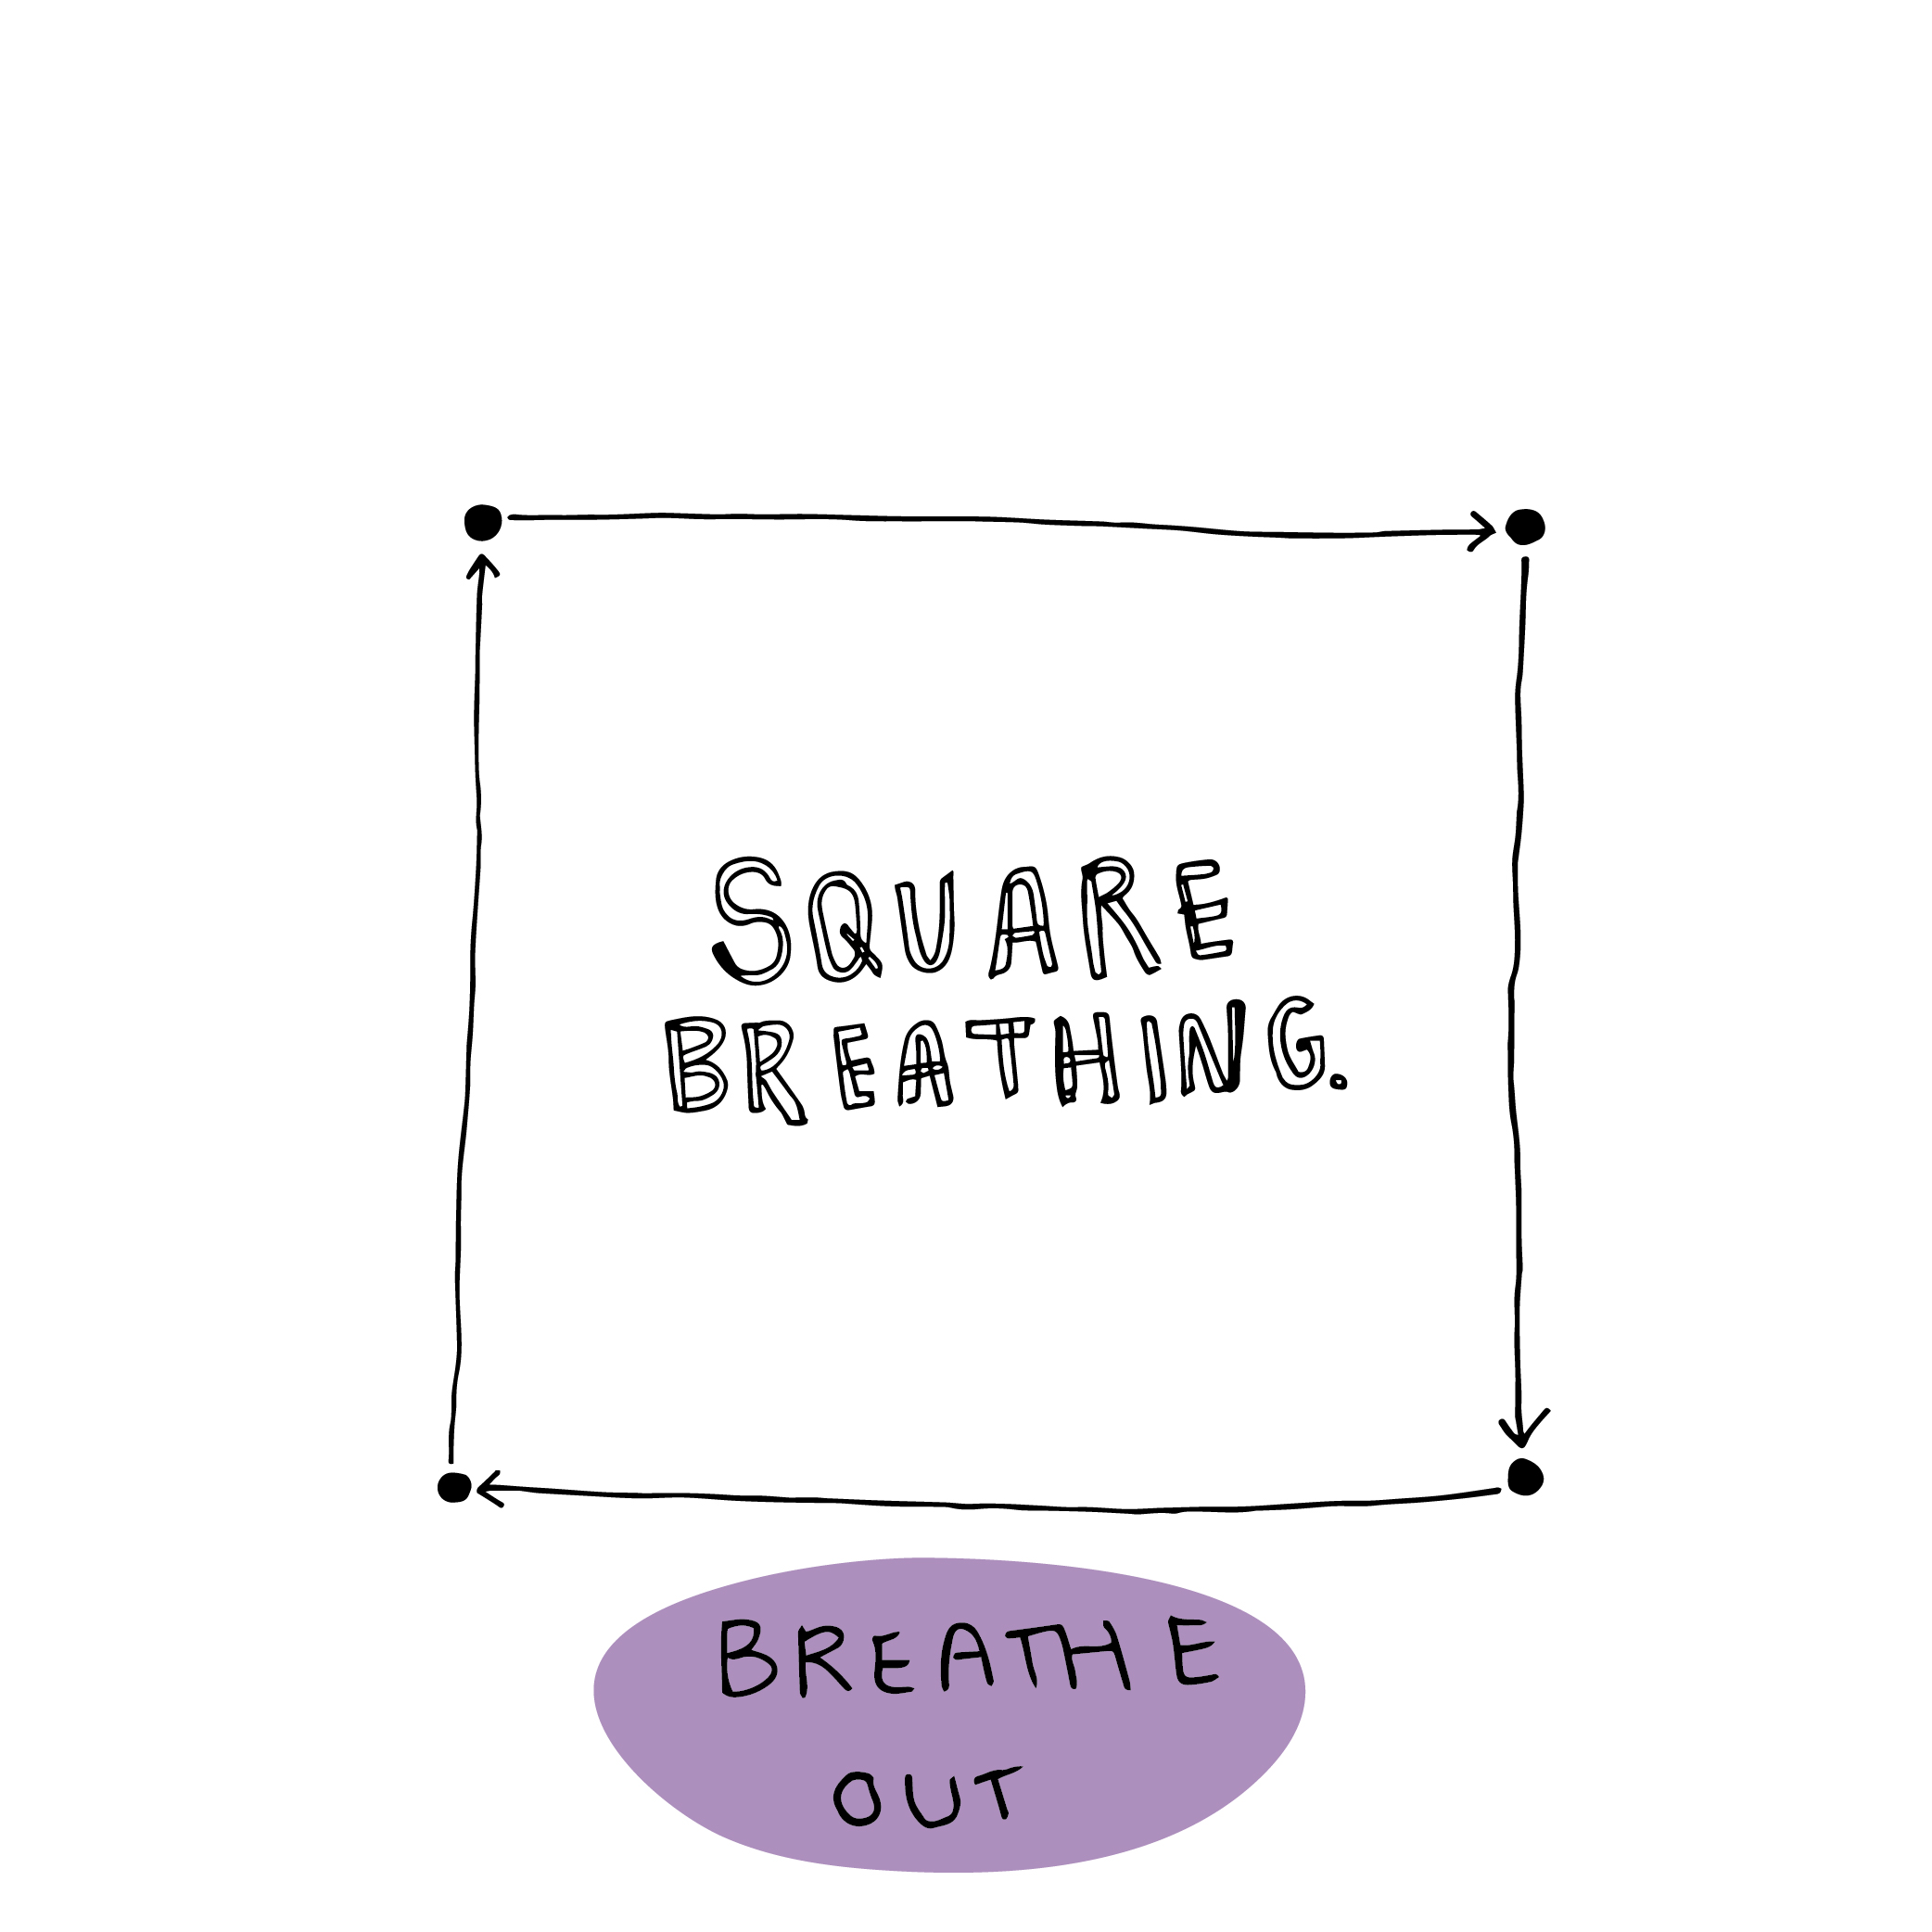 SQUARE
BREATHING.
BREATHE
OUT